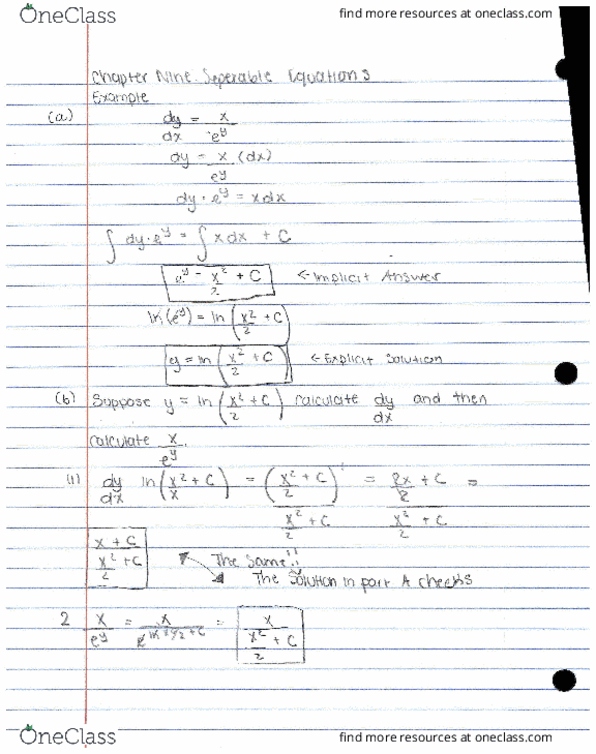 OneClass find more resources at oneclass.com
Chapter Nine: Seperable Equations
Example
(a) dy/dx = x/e^y
dy = x/e^y (dx)
dy · e^y = xdx
∫ dy·e^y = ∫ x dx + C
e^y = x²/2 + C ← Implicit Answer
ln(e^y) = ln(x²/2 + C)
y = ln(x²/2 + C) ← Explicit Solution
(b) Suppose y = ln(x²/2 + C) calculate dy/dx and then
calculate x/e^y.
(1) dy/dx ln(x²/x + C) = (x²/2 + C)'/(x²/2 + C) = (2x/2 + C)/(x²/2 + C) =
(x + C)/(x²/2 + C) The same!!
The Solution in part A checks
2 x/e^y = x/e^(ln x²/2 + C) = x/(x²/2 + C)
OneClass find more resources at oneclass.com